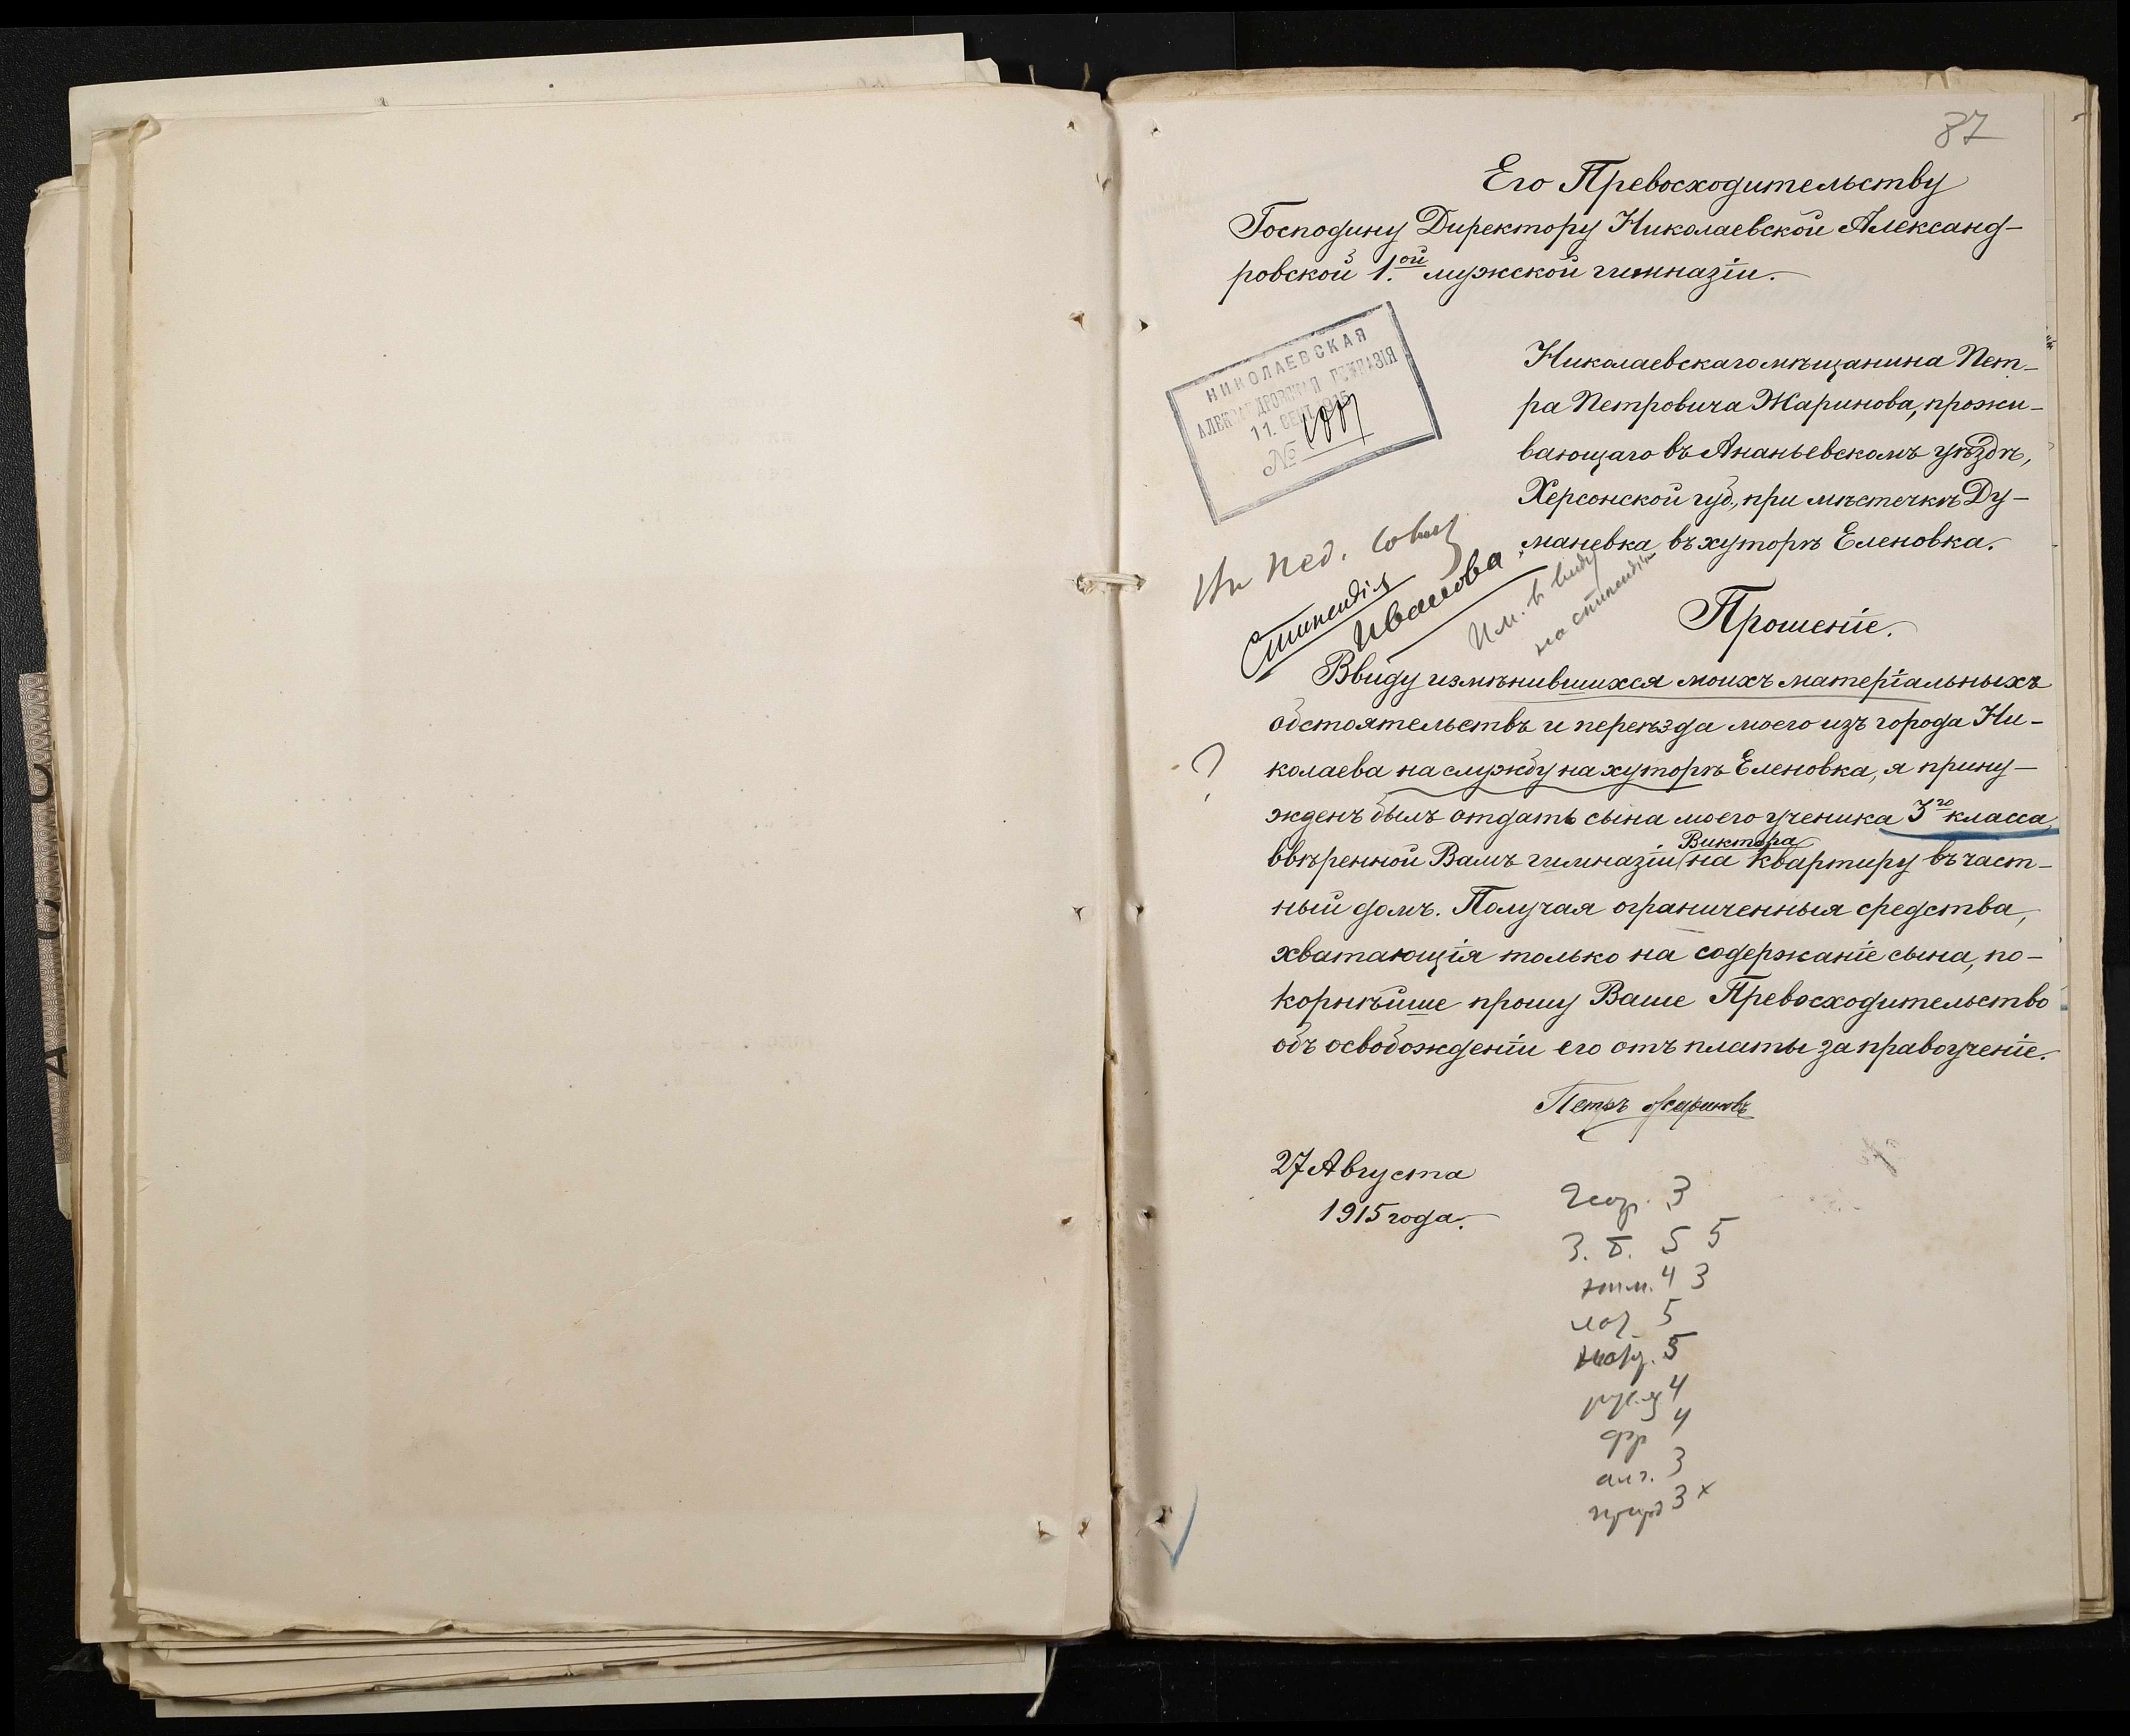 87
Его Превосходительству
Господину Директору Николаевской Александ-
ровской 1.ой мужской гимназіи.
НИКОЛАЕВСКАЯ
АЛЕКСАНДРОВСКАЯ ГИМНАЗІЯ
11. СЕН. 1915
№
Николаевскаго мѣщанина Пет-
ра Петровича Жаринова, прожи-
вающаго въ Ананьевскомъ уѣздѣ,
Херсонской губ., при мѣстечкѣ Ду-
маневка въ хуторѣ Еленовка.
Въ пед. совѣтъ
Стипендія
Иванова
Им. въ виду
на стипендію
Прошеніе.
Ввиду измѣнившихся моихъ матеріальныхъ
обстоятельствъ и переѣзда моего изъ города Ни-
?
колаева на службу на хуторѣ Еленовка, я прину-
жденъ былъ отдать сына моего ученика 3го класса
Виктора
ввѣренной Вамъ гимназіи на квартиру въ част-
ный домъ. Получая ограниченныя средства,
хватающія только на содержаніе сына, по-
корнѣйше прошу Ваше Превосходительство
объ освобожденіи его отъ платы за правоученіе.
Петръ Жариновъ
27 Августа
1915 года.
Геогр. 3
З. Б. 5 5
4 3
5
5
рус. яз 4
фр 4
алг. 3
3 x